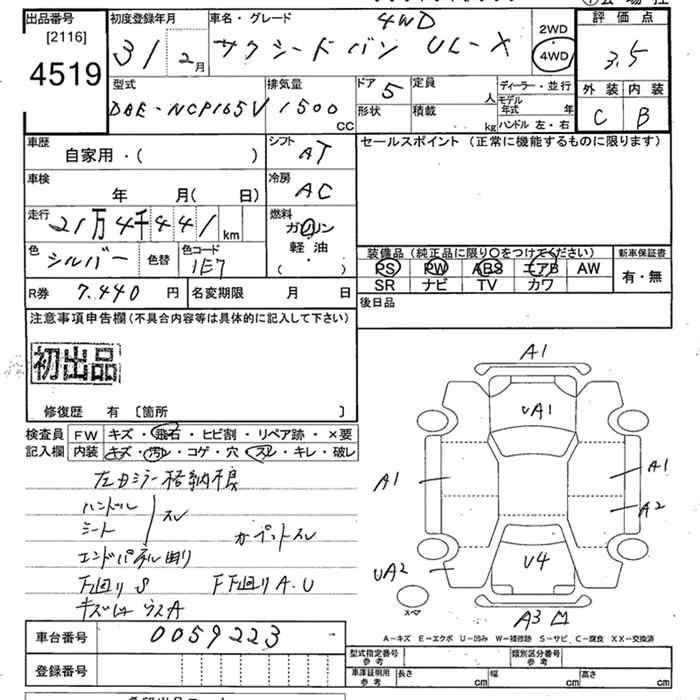 出品番号
[2116]
4519
初度登録年月
31 2月
車名・グレード
4WD
サクシードバン UL-X
2WD
4WD
評価点
3.5
外装 内装
C B
型式
DBE-NCP165V
排気量
1500
CC
ドア
5
形状
定員
人
積載
kg
ディーラー・並行
モデル
年式 年
ハンドル 左・右
車歴
自家用・( )
シフト
AT
セールスポイント (正常に機能するものに限ります)
車検
年 月( 日)
冷房
AC
走行
21万4千441 km
燃料
ガソリン
軽油
( ・ )
色
シルバー
色替
色コード
1E7
装備品 (純正品に限り〇をつけてください)
新車保証書
PS PW ABS エアB AW
有・無
SR ナビ TV カワ
R券 7.440 円
名変期限 月 日
後日品
注意事項申告欄 (不具合内容等は具体的に記入して下さい)
初出品
修復歴 有 〔箇所 〕
検査員
記入欄
FW キズ・飛石・ヒビ割・リペア跡・×要
内装 キズ・汚レ・コゲ・穴・スレ・キレ・破レ
左Dミラー格納不良
ハンドル
シート
スレ
カーペットスレ
エンドパネル曲り
下回り S
F下回り A.U
A1
UA1
A1
A1
A2
U4
UA2
スペア
A3
A-キズ E-エクボ U-凹み W-補修跡 S-サビ C-腐食 XX-交換済
車台番号
0059223
登録番号
型式指定番号
参考
類別区分番号
参考
車庫証明用
参考
長さ cm
幅 cm
高さ cm